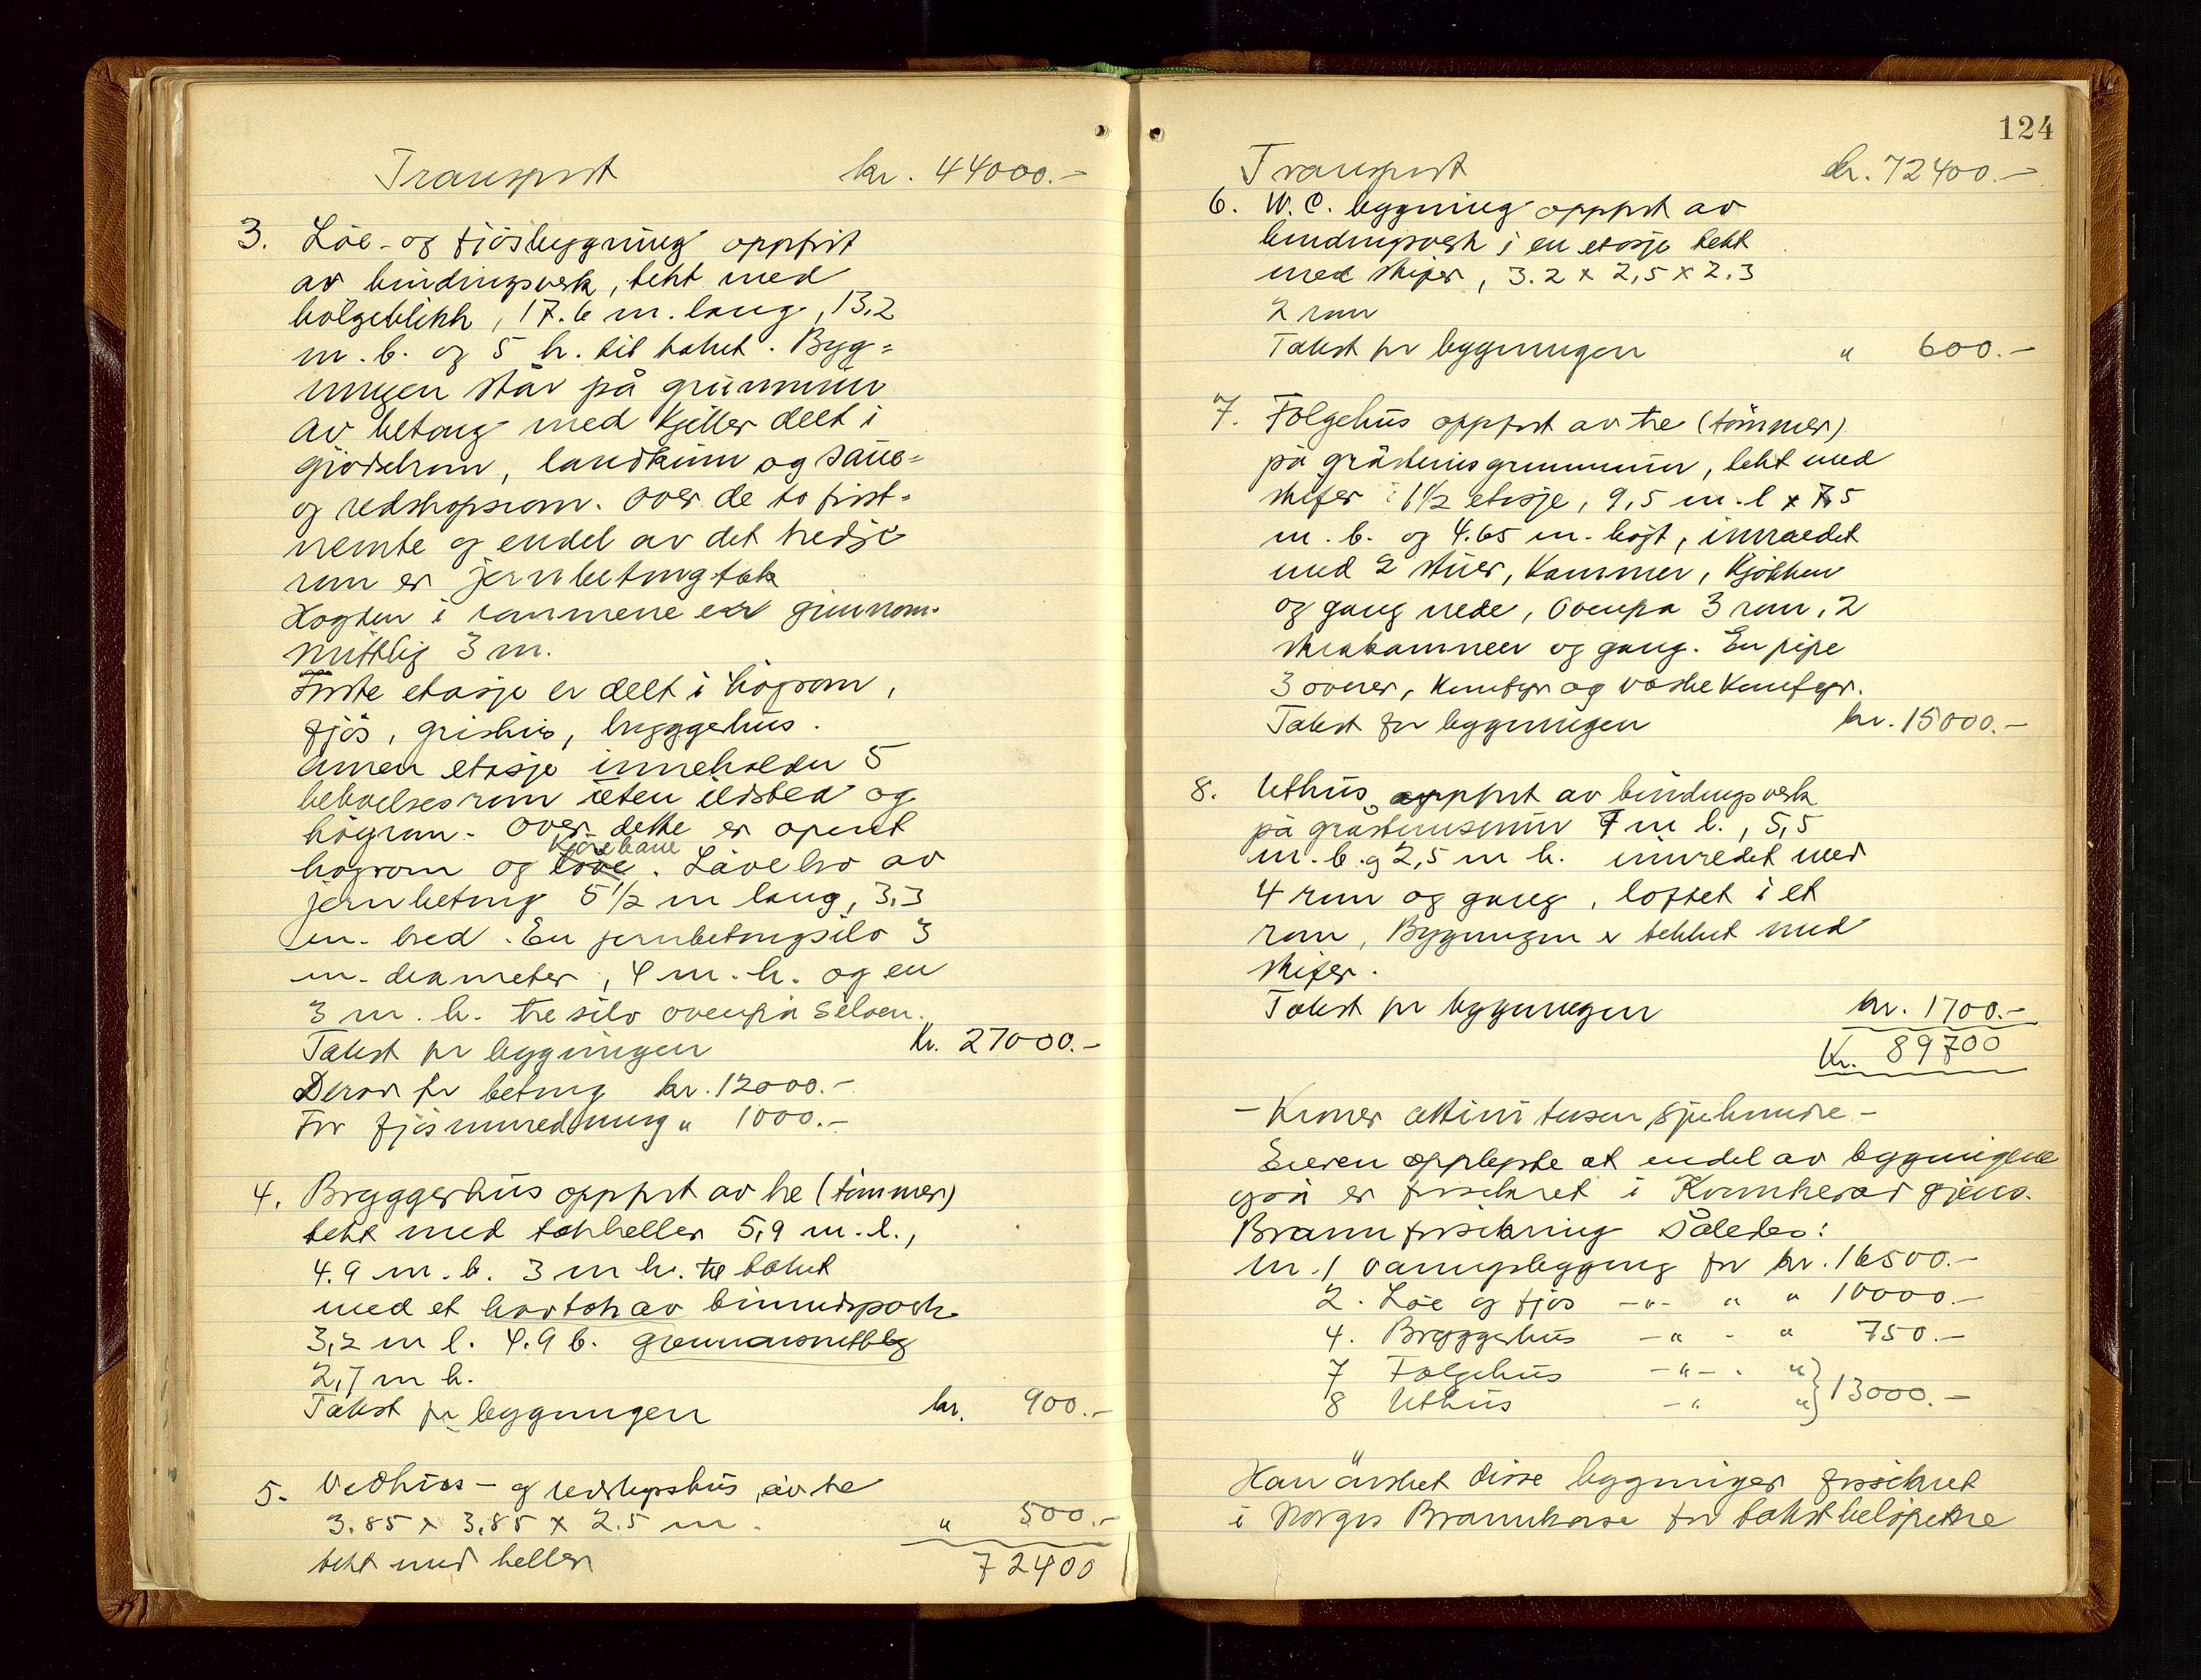 Transport kr. 44000.-
3. Löe- og fjösbygning oppført
av bindingsverk, tekt med
bölgeblikk, 17.6 m. lang, 13,2
m. b. og 5 h. til taket. Byg=
ningen står på grunnmur
av betong med kjeller delt i
gjödselrom, landkum og saue=
og redskapsrom. Over de to först=
nemte og endel av det tredje
rum er jernbetongtak
Högden i rummene er gjennom=
snittlig 3 m.
Förste etasje er delt i högrom,
fjös, grishus, bryggerhus.
Annen etasje inneholder 5
beboelsesrum uten ildsted og
högrum. Over dette er opent
kjörebane
högrom og löve. Låvebro av
jernbetong 5 1/2 m lang, 3,3
m. bred. En jernbetongsilo 3
m. diameter, 4 m. h. og en
3 m. h. tresilo ovenpå siloen.
Takst for bygningen Kr. 27000.-
Derav for betong kr. 12000.-
For fjösinnredning " 1000.-
4. Bryggerhus oppfört av tre (tömmer)
tekt med takheller 5,9 m. l.,
4.9 m. b. 3 m h. til taket
med et halvtak av binningsverk
3,2 m l. 4.9 b. gjennomsnittlig
2,7 m h.
Takst for bygningen kr. 900.-
5. Vedhus- og redskapshus, av tre
3.85 x 3,85 x 2.5 m. " 500.-
tekt med heller 72400
124
Transport kr. 72400.-
6. W. C. bygning oppfört av
bindingsverk i en etasje tekt
med skifer, 3.2 x 2,5 x 2.3
2 rum
Takst for bygningen " 600.-
7. Fölgehus oppfört av tre (tömmer)
på gråsteinsgrunnmur, tekt med
skifer i 1 1/2 etasje, 9,5 m. l x 7,5
m. b. og 4.65 m. högt, innredet
med 2 stuer, kammer, kjökken
og gang nede, ovenpå 3 rum, 2
skråkammer og gang. En pipe
3 ovner, komfyr og vaskekomfyr.
Takst for bygningen kr. 15000.-
8. Uthus, oppfört av bindingsverk
på gråsteinsmur 7 m l., 5,5
m. b. og 2,5 m h. innredet med
4 rum og gang, loftet i et
rum, Bygningen er tekket med
skifer.
Takst for bygningen kr. 1700.-
Kr. 89700
- Kroner åttini tusen sjuhundre -
Eieren opplyste at endel av bygningene
også er forsikret i Kvinnherad gjens.
Brannforsikring således:
Nr. 1 Våningsbygging for kr. 16500.-
2. Löe og fjös -"- " " 10000.-
4. Bryggerhus -" - " 750.-
7 Fölgehus -"- . "
8 Uthus -" "} 13000.-
Han önsket disse bygninger forsikret
i Norges Brannkasse for takstbelöpene